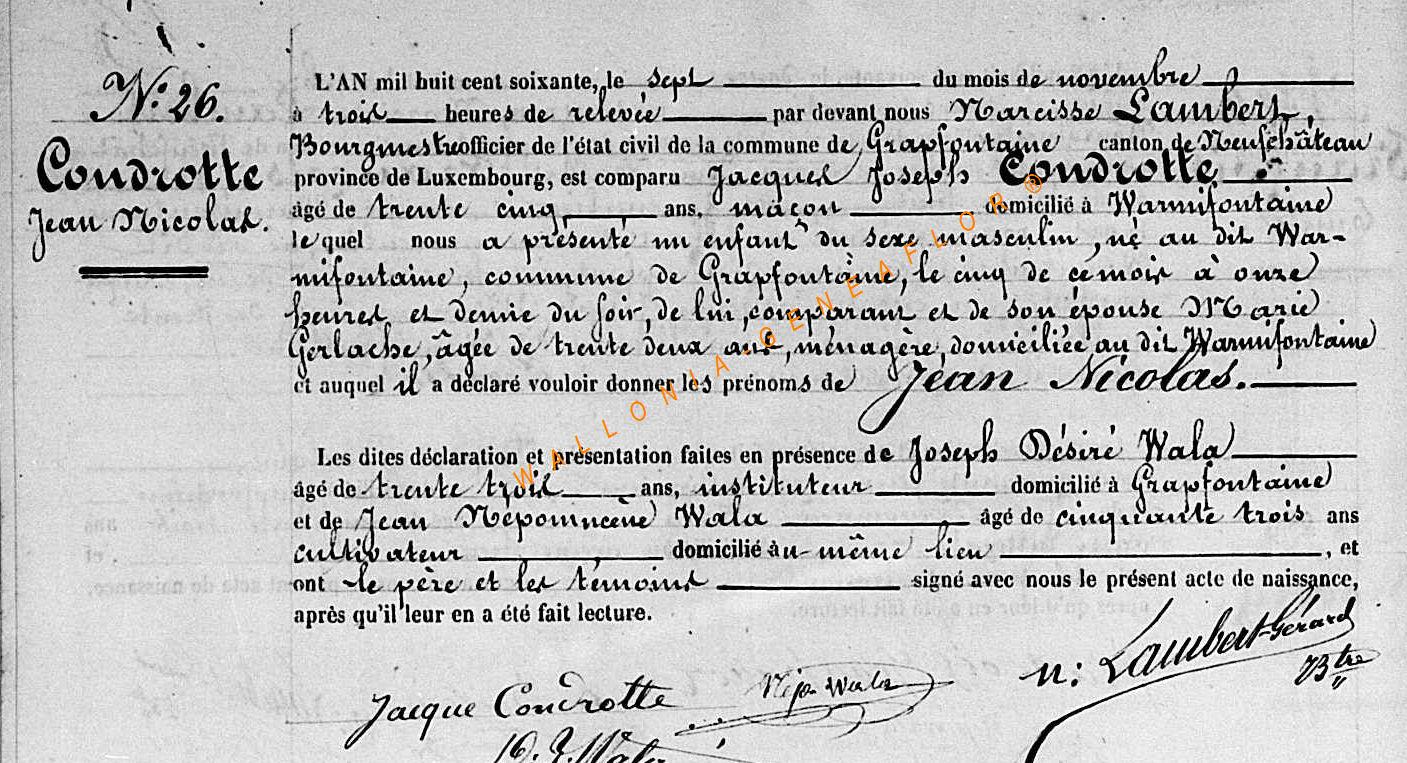 N.° 26.
Condrotte
Jean Nicolas.
L'AN mil huit cent soixante, le sept du mois de novembre
à trois heures de relevée par devant nous Narcisse Lambert,
Bourgmestre officier de l'état civil de la commune de Grapfontaine canton de Neufchâteau
province de Luxembourg, est comparu Jacques Joseph Condrotte
âgé de trente cinq ans, maçon domicilié à Warmifontaine
lequel nous a présenté un enfant du sexe masculin, né au dit War-
mifontaine, commune de Grapfontaine, le cinq de ce mois à onze
heures et demie du soir, de lui, comparant et de son épouse Marie
Gerlache, âgée de trente deux ans, ménagère, domiciliée au dit Warmifontaine
et auquel il a déclaré vouloir donner les prénoms de Jean Nicolas.
Les dites déclaration et présentation faites en présence de Joseph Désiré Wala
âgé de trente trois ans, instituteur domicilié à Grapfontaine
et de Jean Népomucène Wala âgé de cinquante trois ans
cultivateur domicilié au même lieu , et
ont le père et les témoins signé avec nous le présent acte de naissance,
après qu'il leur en a été fait lecture.
WALLONIA-GENEAFLOR ®
n: Lambert-Gérard
Btre
Jacque Condrotte
Wala